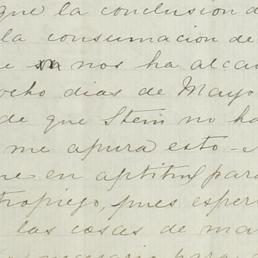 que la conclusion d
la consumacion de
e en nos ha alcan
ocho dias de Mayo
de que Stein no ha
me apura esto -
ne en aptitud para
tropiego, pues esper
las cosas de ma
para